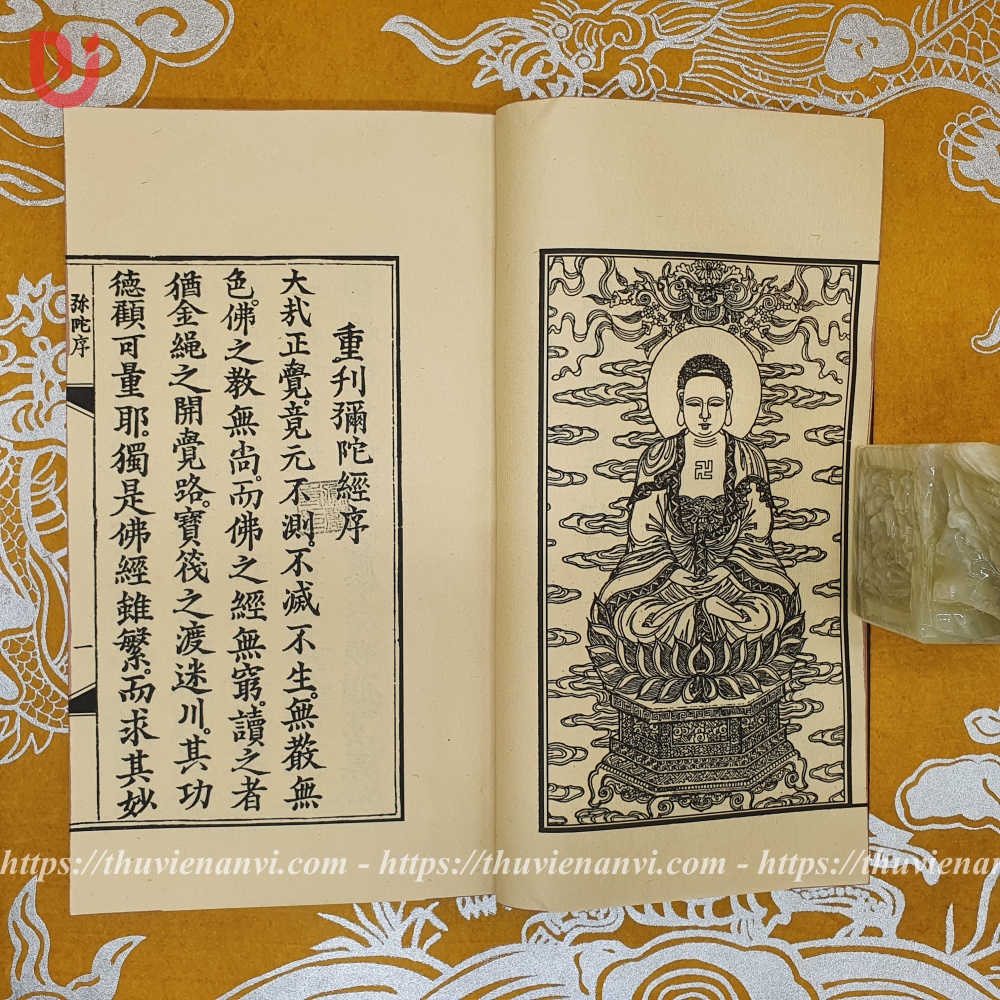 重刋彌陀經序
大㢤正覺。竟元不測。不滅不生。無散無
色。佛之教無尚。而佛之經無窮。讀之者
猶金繩之開覺路。寶筏之渡迷川。其功
德顧可量耶。獨是佛經雖繁。而求其妙
弥陀序
一
卍
https://thuvienanvi.com - https://thuvienanvi.com - https://thuvienanvi